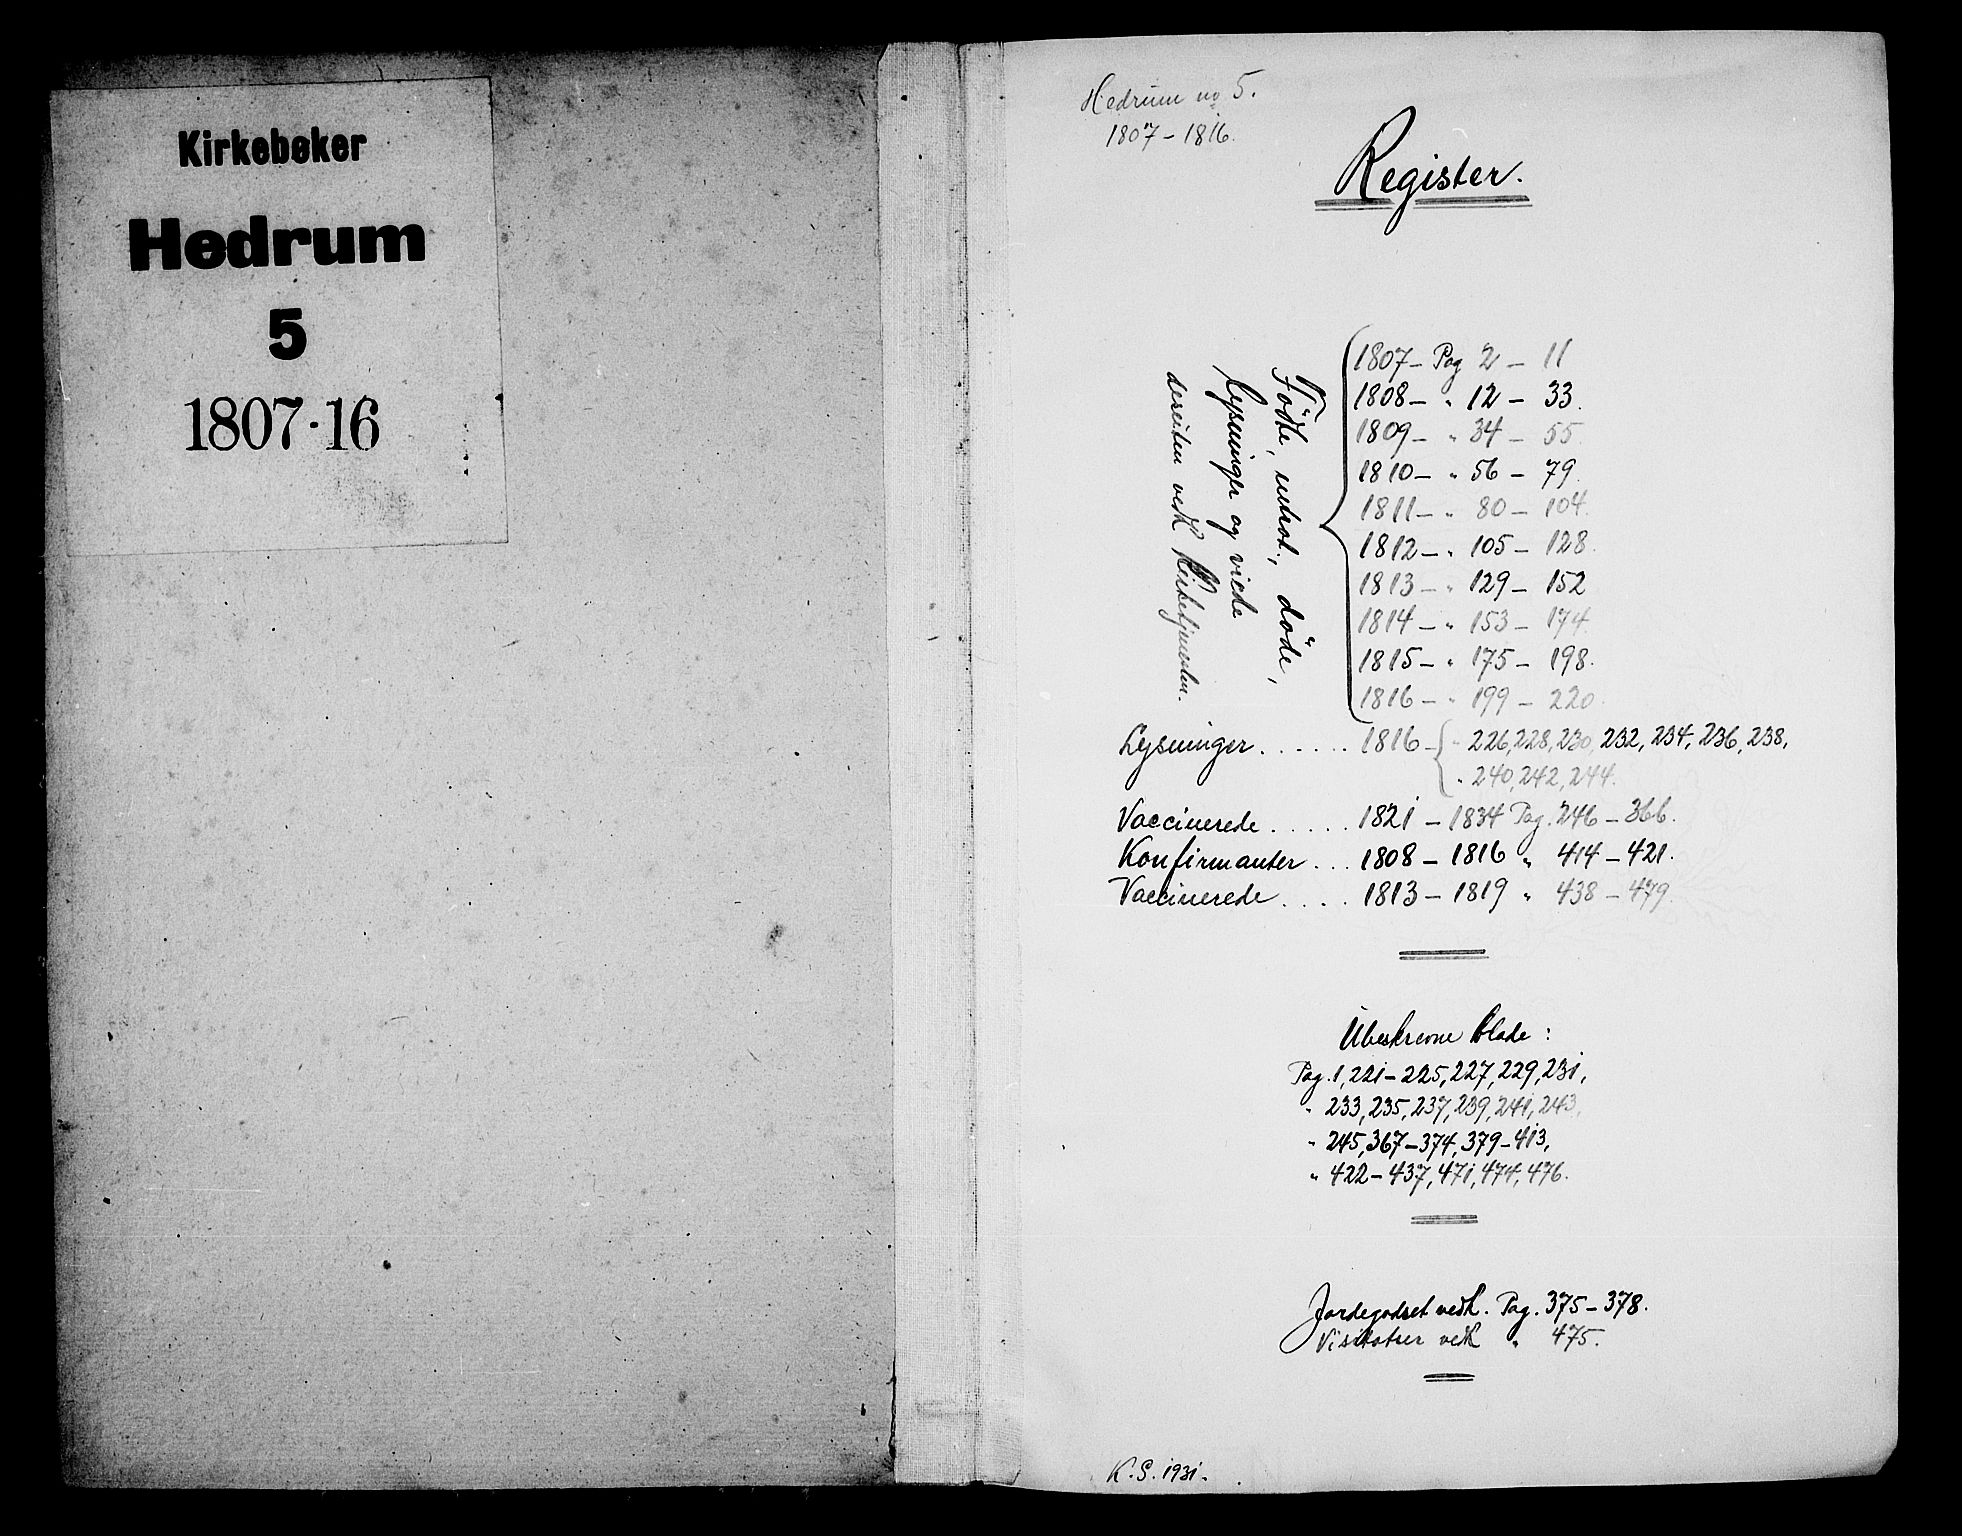 Kirkebøker
Hedrum
5
1807-16
Hedrum no 5.
1807 - 1816.
Register.
Födte, introd., döde,
Lysninger og viede
desuten vedk Kirketjenesten.
1807 - Pag 2 - 11
1808 - " 12 - 33.
1809 - " 34 - 55.
1810 - " 56 - 79.
1811 - " 80 - 104.
1812 - " 105 - 128.
1813 - " 129 - 152
1814 - " 153 - 174.
1815 - " 175 - 198.
1816 - " 199 - 220.
Lysninger ...... 1816 - " 226, 228, 230, 232, 234, 236, 238,
" 240, 242, 244.
Vaccinerede ..... 1821 - 1834 Pag. 246 - 366.
Konfirmanter ... 1808 - 1816 " 414 - 421.
Vaccinerede .... 1813 - 1819 " 438 - 479.
Ubeskrevne blade :
Pag. 1, 221 - 225, 227, 229, 231,
" 233, 235, 237, 239, 241, 243,
" 245, 367 - 374, 379 - 413,
" 422 - 437, 471, 474, 476.
Jordegodset vedk. Pag. 375 - 378.
Visitatser vedk " 475.
K. S. 1931.